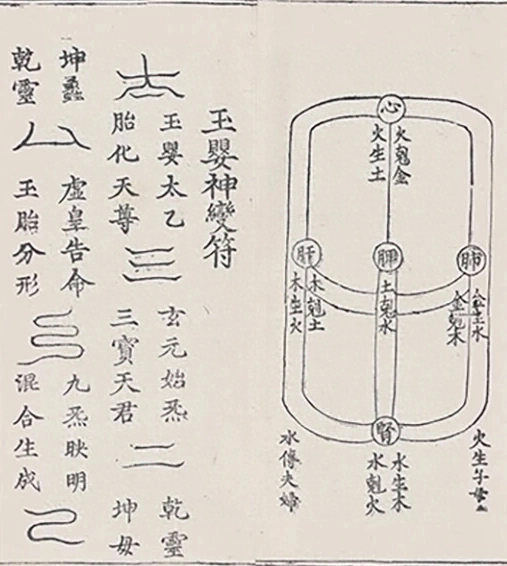 心
火剋金
火生土
肺
金生水
金剋木
脾
土剋水
肝
木剋土
木生火
腎
水生木
水剋火
火生子母
水傳夫婦
玉嬰神變符
玉嬰太乙
胎化天尊
玄元始炁
三寶天君
乾靈
坤母
坤
乾靈
虛皇告命
玉胎分形
九炁映明
混合生成